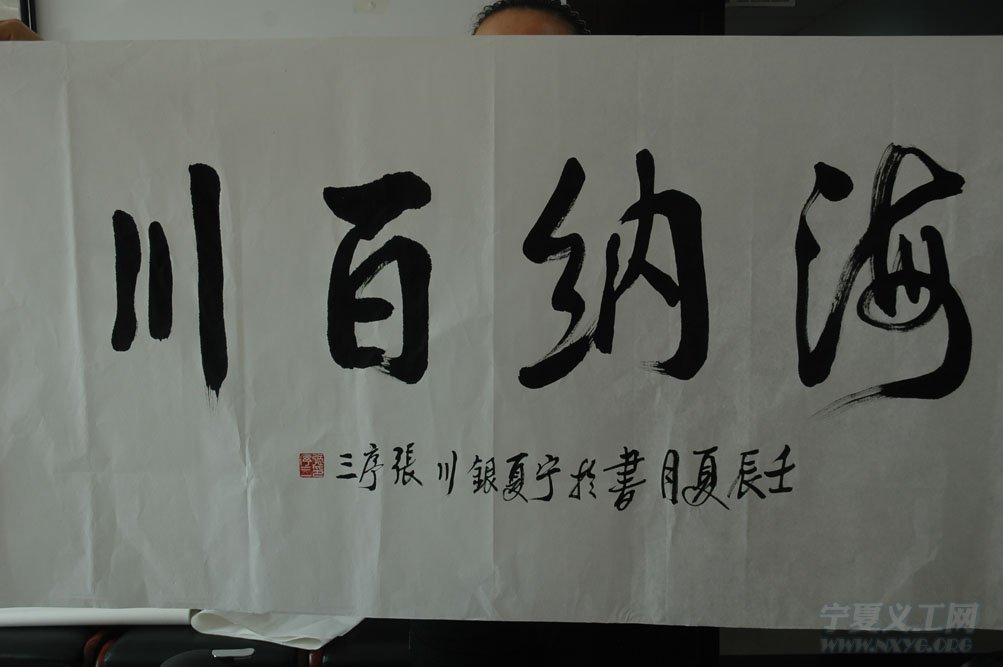 海纳百川
壬辰夏月書於宁夏銀川張序三
宁夏义工网
WWW.NXYG.ORG